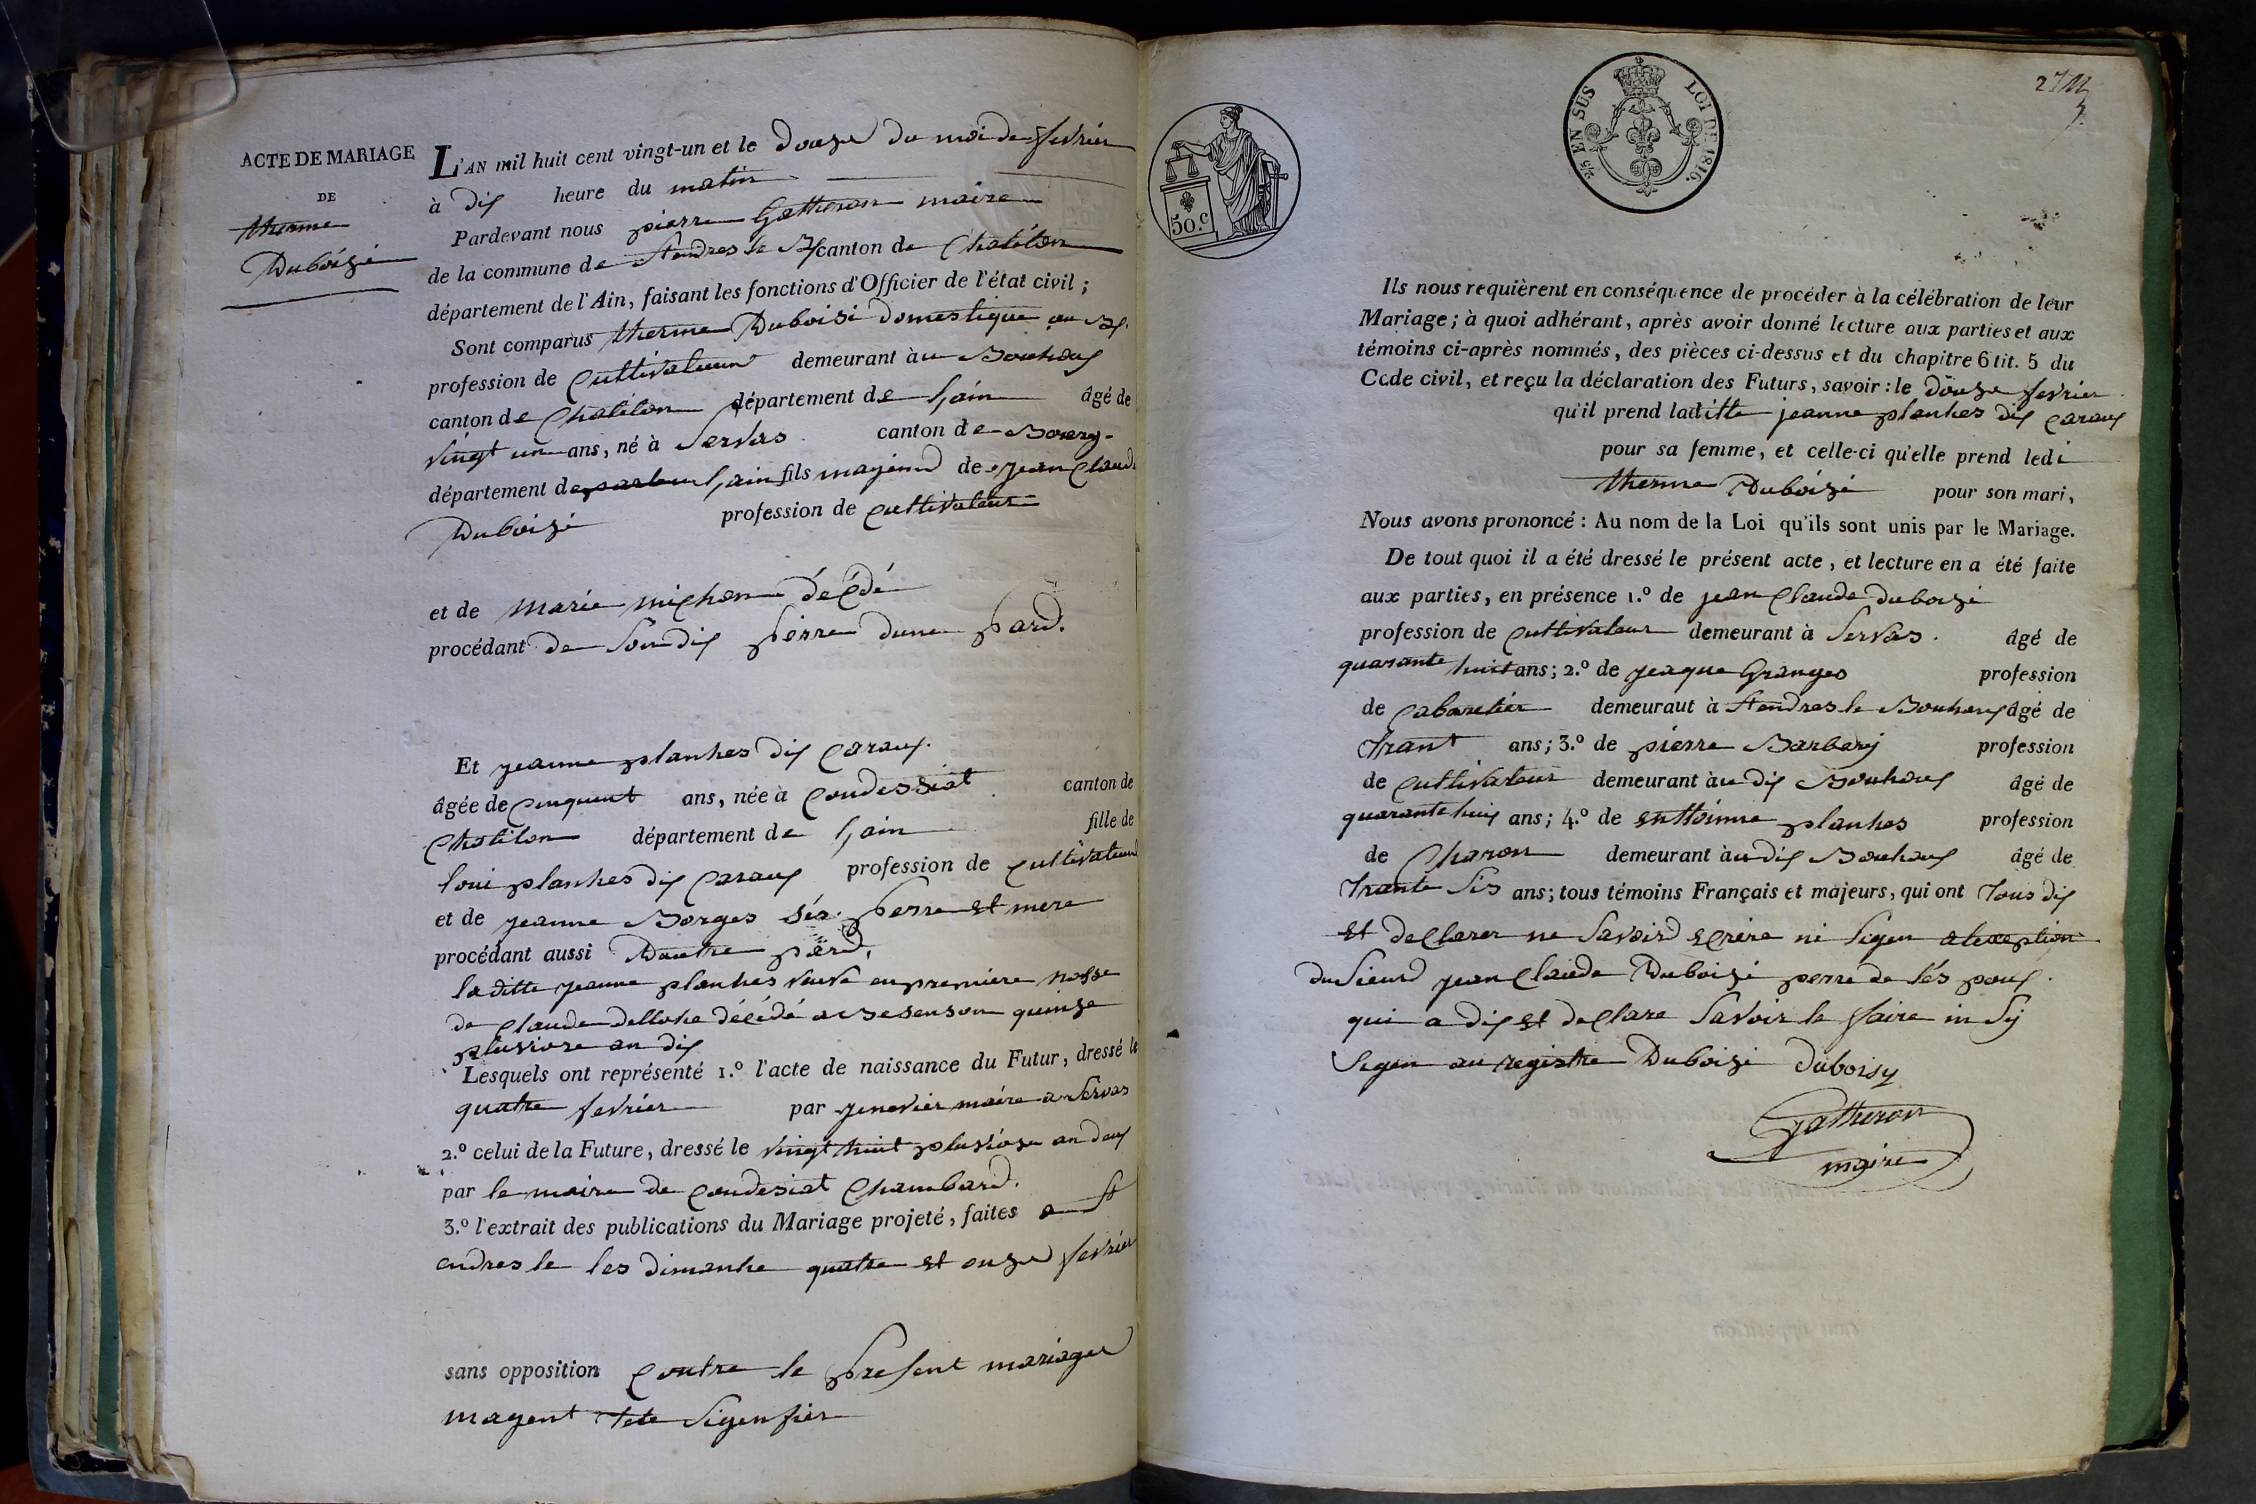 ACTE DE MARIAGE
DE
therme
Duboizi
L'AN mil huit cent vingt-un et le Douze du moi de fevrier
à dix heure du matin
Pardevant nous pierre Gatheron maire
de la commune de St andres le canton de Chatilon
département de l'Ain, faisant les fonctions d'Officier de l'état civil ;
Sont comparus therme Duboisi Domestique au
profession de Cultivateur demeurant à u Bouhoux
canton de Chatilon département de L'ain âgé de
vingt un ans, né à Servas canton de Bourg
département de L'ain fils mageur de jean Claude
Duboizi profession de Cultivateur
et de marie michon décédé
procédant de Son dix perre dune pard.
Et jeanne planhes dix Caraux.
âgée de Cinquent ans, née à Condessiat canton de
Chatilon département de L'ain fille de
loui planhes dix Caraux profession de Cultivateur
et de jeanne Borges sés perre et mere
procédant aussi Dautre pard,
la ditte jeanne planhes veuve en premiere nosse
de Claude dellohe décédé a Besenson quinze
pluviose an dix
Lesquels ont représenté 1.º l'acte de naissance du Futur, dressé le
quatre fevrier par jenevier maire a Servas
2.º celui de la Future, dressé le vingt huit pluviose an deux
par le maire de Condesiat Chambard.
3.º l'extrait des publications du Mariage projeté, faites a St
andres le les dimanhe quatre et onze fevrier
sans opposition Contre le present mariage
magent tete Sigenfier
27
25 EN SUS LOI DE 1816.
50.c
Ils nous requièrent en conséquence de procéder à la célébration de leur
Mariage ; à quoi adhérant, après avoir donné lecture aux parties et aux
témoins ci-après nommés, des pièces ci-dessus et du chapitre 6 tit. 5 du
Code civil, et reçu la déclaration des Futurs, savoir : le douze fevrier
qu'il prend laditte jeanne planhes dix Caraux
pour sa femme, et celle-ci qu'elle prend ledi
therme Duboizi pour son mari,
Nous avons prononcé : Au nom de la Loi qu'ils sont unis par le Mariage.
De tout quoi il a été dressé le présent acte, et lecture en a été faite
aux parties, en présence 1.º de jean Claude duboizi
profession de Cultivateur demeurant à Servas. âgé de
quarante huit ans ; 2.º de jeaque Granges profession
de Cabaretier demeurant à St andres le Bouhoux âgé de
trant ans ; 3.º de pierre Barbary profession
de Cultivateur demeurant à u dix Bouhoux âgé de
quarante huix ans ; 4.º de enttoinne planhes profession
de Charon demeurant à u dix Bouhoux âgé de
trante Sis ans ; tous témoins Français et majeurs, qui ont tous dix
et declarer ne Savoir ecrire ni Sigen alexeption
du Sieurd jean Claude Duboizi perre de lés poux.
qui a dix et declare Savoir le faire in Sy
Sigen au registre Duboizi duboisy
Gatheron
maire